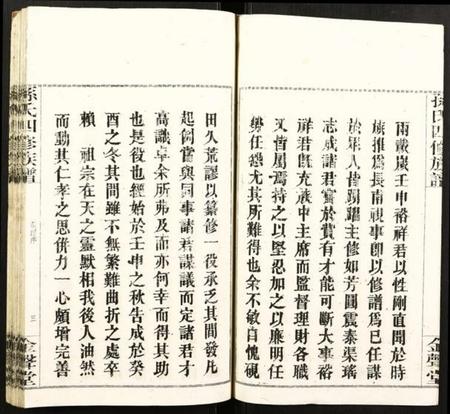 孫氏四修族譜
金聲堂
兩戴歲壬申裕祥君以性剛直聞於時
族推為長南視事即以修譜為已任謀
於年人皆踴躍主修如芳圃震泰渠瑤
志成諸君實於賞有才能可斷大事裕
祥君既充族中主席而監督理財各職
又皆屬焉持之以堅忍加之以廉明任
勞任怨尤其所難得也余不敏自愧硯
田久荒謬以纂修一役承乏其間發凡
起例當與同事諸君謀議而定諸君才
高識卓余所弗及而亦何幸而得其助
也是役也經始於壬申之秋告成於癸
酉之冬其間雖不無繁難曲折之處卒
賴 祖宗在天之靈默相我後人油然
而動其仁孝之思債力一心頗增完善
孫氏四修族譜
三
金聲堂